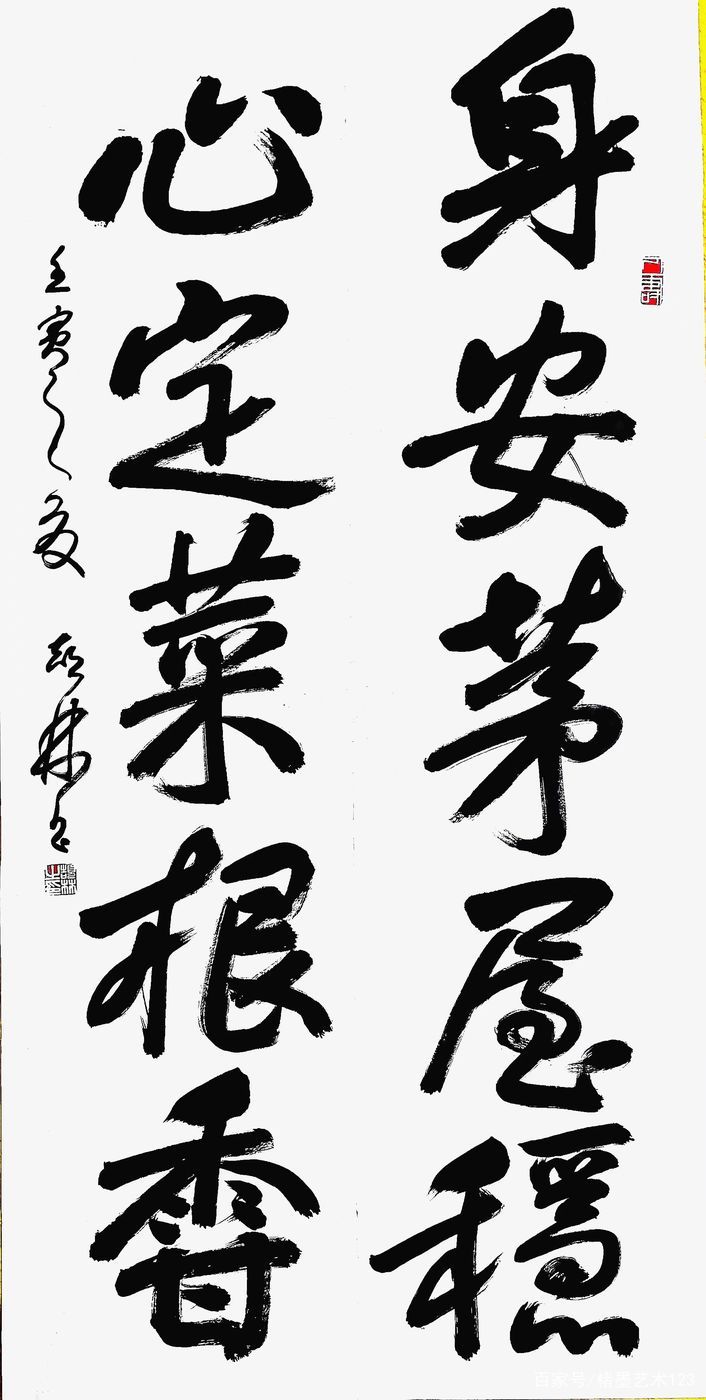 身安茅屋穩
心定菜根香
壬寅之夏
百家号/墨艺术123